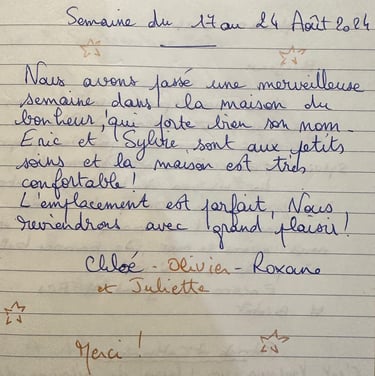 Semaine du 17 au 24 Août 2024
Nous avons passé une merveilleuse
semaine dans la maison du
bonheur, qui porte bien son nom.
Eric et Sylvie, sont aux petits
soins et la maison est très
confortable !
L'emplacement est parfait, Nous
reviendrons avec grand plaisir !
Chloé - Olivier - Roxane
et Juliette
Merci !